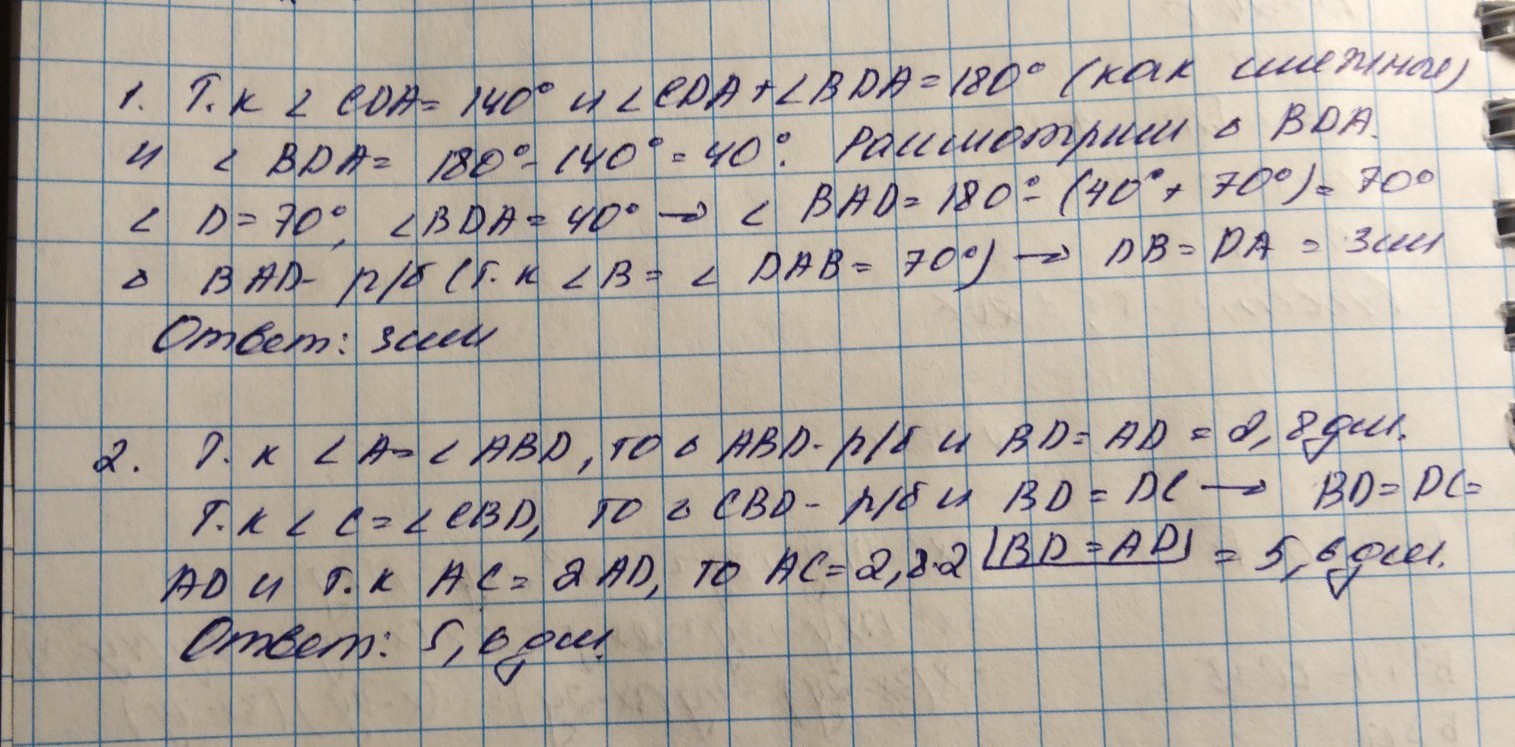 1. Т.к ∠ CDA= 140° и ∠CDA+∠BDA=180° (как смежные)
и ∠ BDA= 180°-140°=40°. Рассмотрим △ BDA.
∠ D=70°, ∠BDA=40° → ∠ BAD=180°-(40°+70°)=70°
△ BAD- р/б (т.к ∠B= ∠ DAB= 70°) → DB=DA = 3см
Ответ: 3см
2. Т.к ∠A=∠ABD, то △ ABD-р/б и BD=AD = 2,8дм.
Т.к ∠ C=∠CBD, то △ CBD-р/б и BD=DC → BD=DC=
AD и т.к AC=2AD, то AC=2,8·2 |BD=AD| = 5,6дм.
Ответ: 5,6дм.